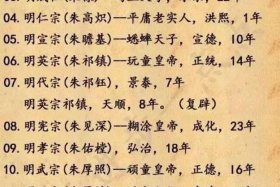 04. 明仁宗(朱高炽)—平庸老实人, 洪熙, 1年
05. 明宣宗(朱瞻基)—蟋蟀天子, 宣德, 10年
06. 明英宗(朱祁镇)—玩童皇帝, 正统, 14年
07. 明代宗(朱祁钰), 景泰, 7年
明英宗祁镇, 天顺, 8年。(复辟)
08. 明宪宗(朱见深)—糊涂皇帝, 成化, 23年
09. 明孝宗(朱佑樘), 弘治, 18年
10. 明武宗(朱厚照)—顽童皇帝, 正德, 16年